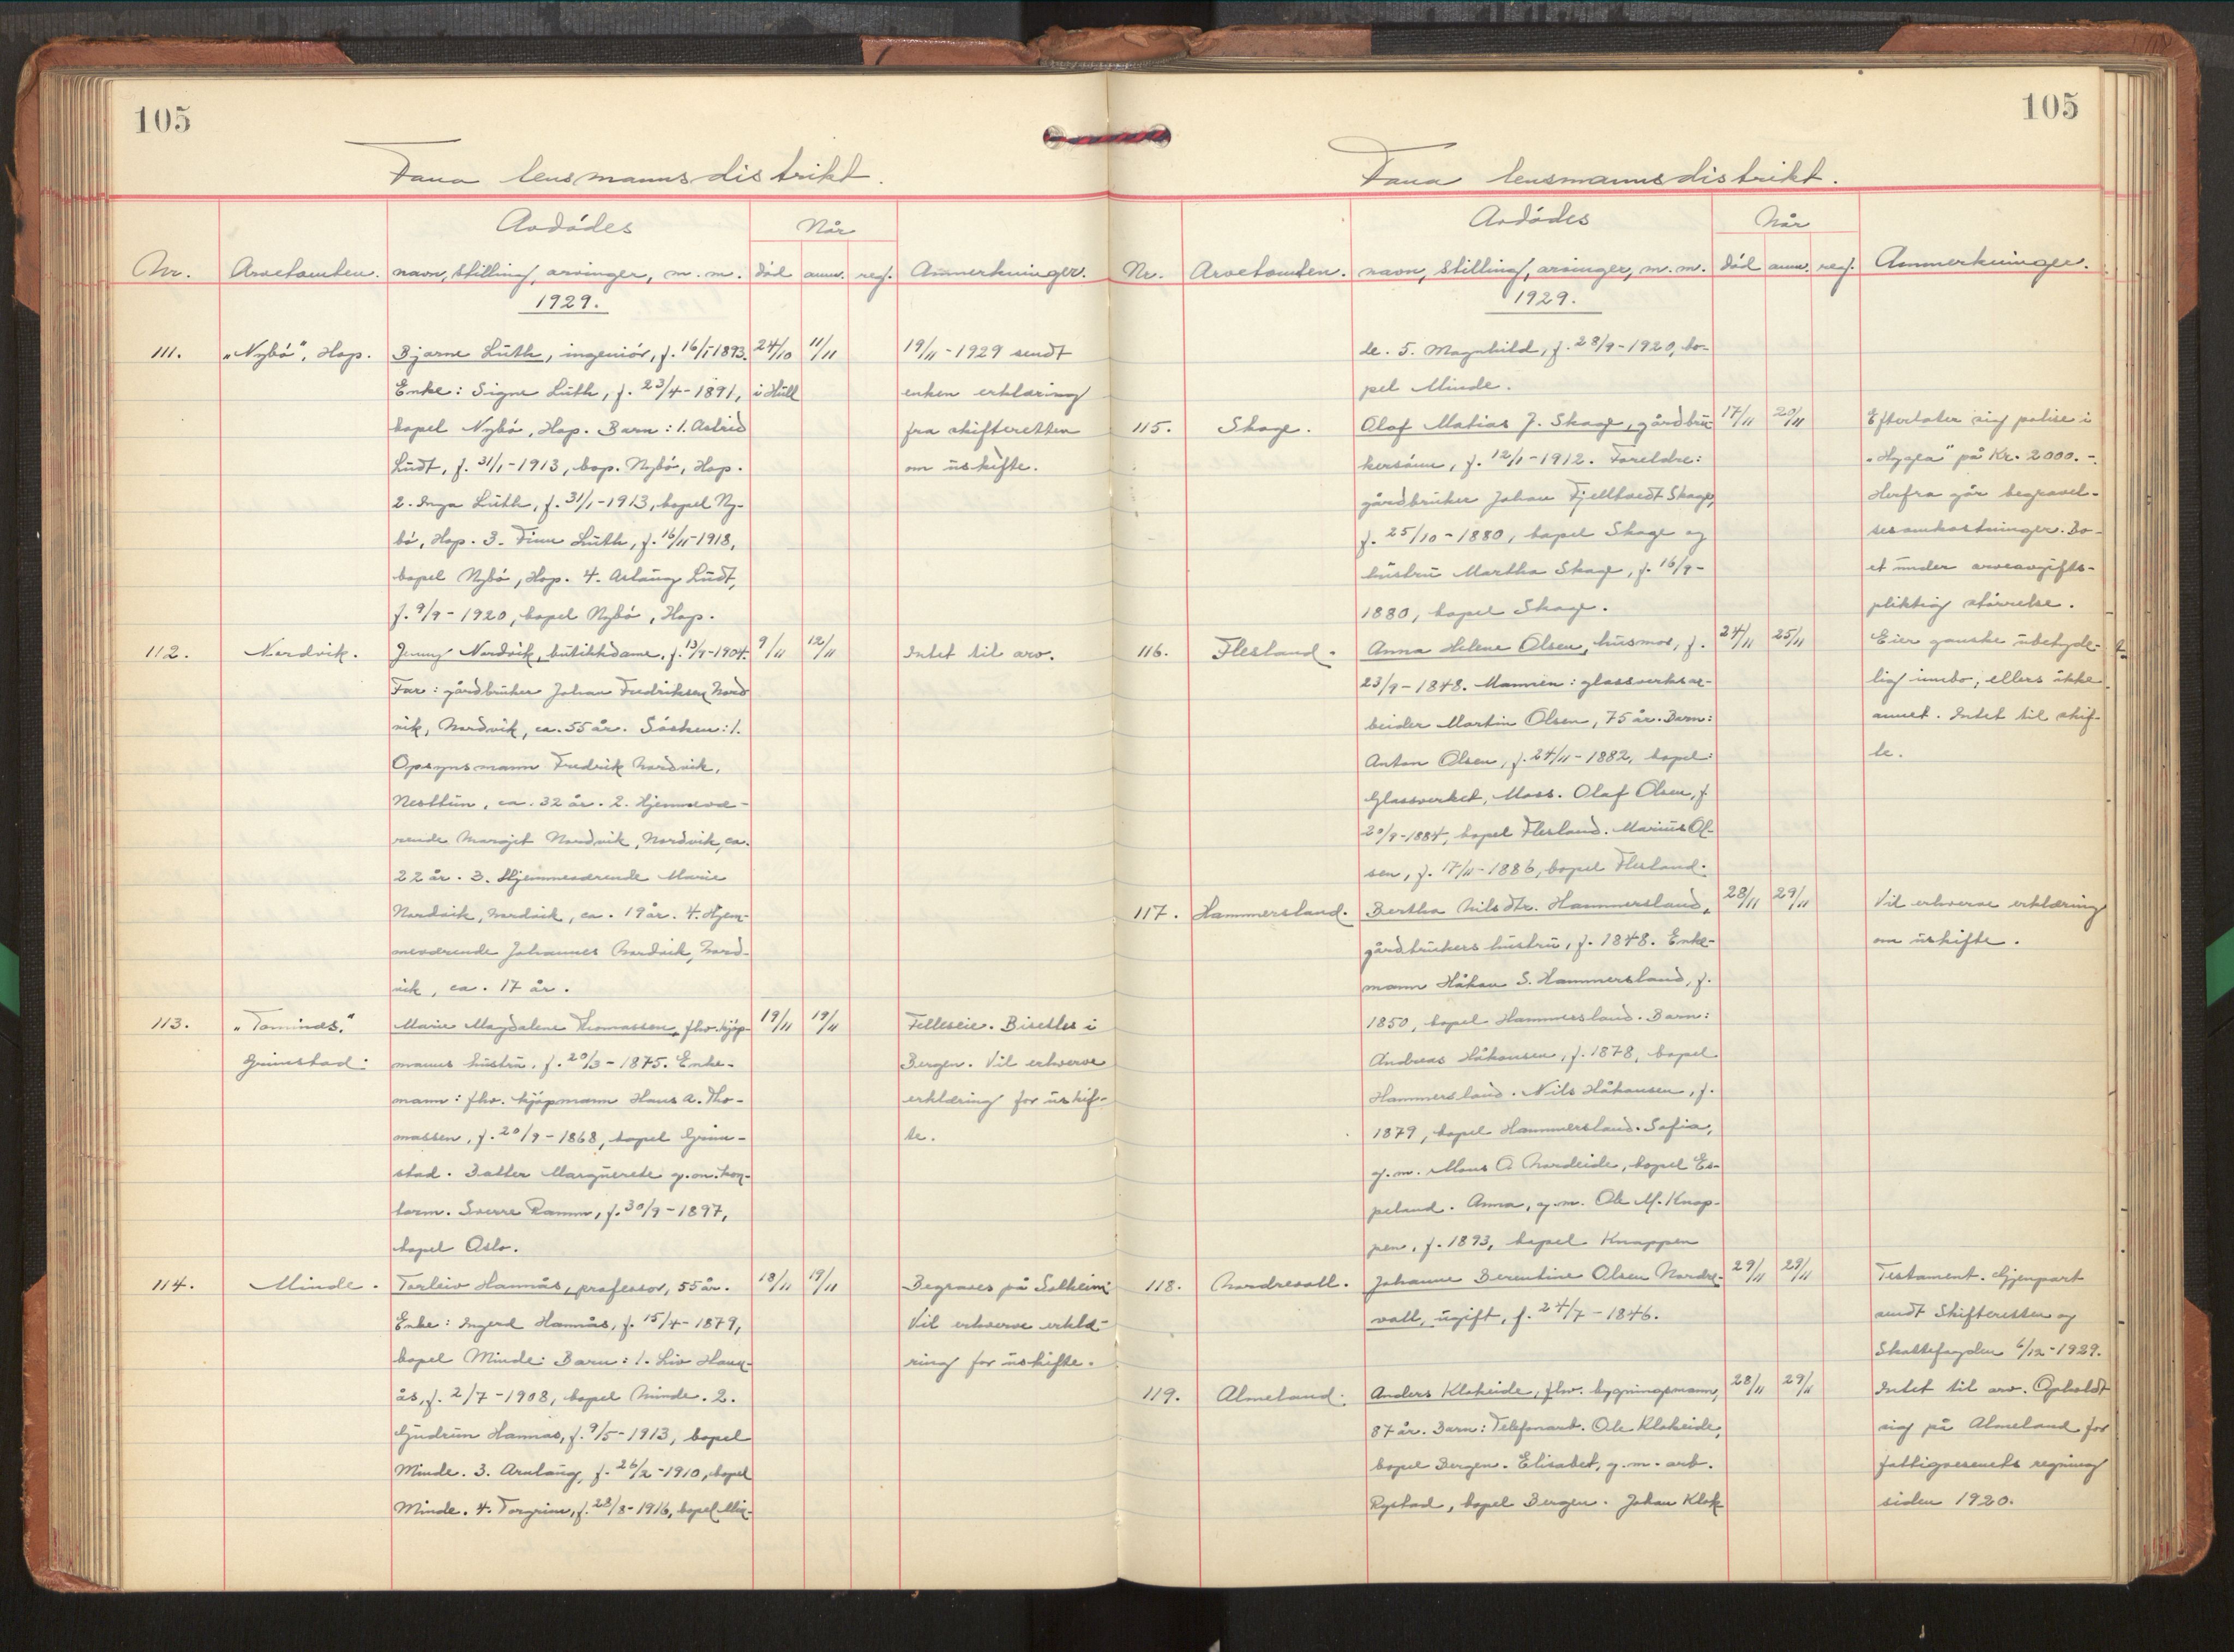 105
Fana lensmannsdistrikt.
Avdødes
Når
Nr. Arvetomten. navn, stilling, arvinger, m. m. død anm. reg. Anmerkninger.
1929.
111. „Nybø", Hop. Bjarne Lüth, ingeniør, f. 16/1 1893. 24/10 11/11 19/11-1929 sendt
Enke: Signe Lüth, f. 23/4-1891, i Hull enken erklæring
bopel Nybø, Hop. Barn: 1. Astrid fra skifteretten
Lüdt, f. 31/1-1913, bop. Nybø, Hop. om uskifte.
2. Inga Lüth, f. 31/1-1913, bopel Ny-
bø, Hop. 3. Finn Lüth, f. 16/11-1918,
bopel Nybø, Hop. 4. Aslaug Lüdt,
f. 9/9-1920, bopel Nybø, Hop.
112. Nordvik. Jenny Nordvik, butikkdame, f. 13/9-1904. 9/11 12/11 Intet til arv.
Far: gårdbruker Johan Fredriksen Nord
vik, Nordvik, ca. 55 år. Søsken: 1.
Opsynsmann Fredrik Nordvik,
Nesttun, ca. 32 år. 2. Hjemmevæ-
rende Margit Nordvik, Nordvik, ca.
22 år. 3. Hjemmeværende Marie
Nordvik, Nordvik, ca. 19 år. 4. Hjem-
meværende Johannes Nordvik, Nord-
vik, ca. 17 år.
113. „Tominæs," Marie Magdalene Thomassen, fhv. kjøp- 19/11 19/11 Felleseie. Bisettes i
Grimstad. manns hustru, f. 20/3-1875. Enke- Bergen. Vil erhverve
mann: fhv. kjøpmann Hans A. Tho- erklæring for uskif-
massen, f. 20/9-1868, bopel Grim- te.
stad. Datter Marguerete g. m. kon-
torm. Sverre Ramm, f. 30/9-1897,
bopel Oslo.
114. Minde. Torleiv Hannås, professor, 55 år. 18/11 19/11 Begraves på Solheim.
Enke: Ingerd Hannås, f. 15/4-1879, Vil erhverve erklæ-
bopel Minde. Barn: 1. Liv Hann- ring for uskifte.
ås, f. 2/7-1908, bopel Minde. 2.
Gudrun Hannas, f. 9/5-1913, bopel
Minde. 3. Arnlaug, f. 26/2-1910, bopel
Minde. 4. Torgrim, f. 28/8-1916, bopel Min-
105
Fana lensmannsdistrikt.
Avdødes
Når
Nr. Arvetomten. navn, stilling, arvinger, m. m. død anm. reg. Anmerkninger.
1929.
de. 5. Magnhild, f. 28/9-1920, bo-
pel Minde.
115. Skage. Olaf Matias J. Skage, gårdbru- 17/11 20/11 Efterlater sig polise i
kersønn, f. 12/1-1912. Foreldre: „Hygea" på Kr. 2000.-.
gårdbruker Johan Fjelltvedt Skage, Herfra går begravel-
f. 25/10-1880, bopel Skage og sesomkostninger. Bo-
hustru Martha Skage, f. 16/9- et under arveavgifts-
1880, bopel Skage. pliktig størrelse.
116. Flesland. Anna Helene Olsen, husmor, f. 24/11 25/11 Eier ganske ubetyde-
23/9-1848. Mannen: glassverksar- lig innbo, ellers ikke
beider Martin Olsen, 75 år. Barn: annet. Intet til skif-
Anton Olsen, f. 24/11-1882, bopel: te.
Glassverket, Moss. Olaf Olsen, f
20/9-1884, bopel Flesland. Marius Ol-
sen, f. 17/11-1886, bopel Flesland.
117. Hammersland. Bertha Nilsdtr. Hammersland, 28/11 29/11 Vil erhverve erklæring
gårdbrukers hustru, f. 1848. Enke- om uskifte.
mann Håkon S. Hammersland, f.
1850, bopel Hammersland. Barn:
Andreas Håkonsen, f. 1878, bopel
Hammersland. Nils Håkonsen, f.
1879, bopel Hammersland. Sofia,
g. m. Mons O Nordeide, bopel Es-
peland. Anna, g. m. Ole M. Knap-
pen, f. 1893, bopel Knappen
118. Nordrevoll. Johanne Berentine Olsen Nordre- 29/11 29/11 Testament. Gjenpart
voll, ugift, f. 24/7-1846. sendt Skifteretten og
Skattefogden 6/12-1929.
119. Almeland. Anders Klokeide, fhv. bygningsmann, 28/11 29/11 Intet til arv. Opholdt
87 år. Barn: Telefonarb. Ole Klokeide, sig på Almeland for
bopel Bergen. Elisabet, g. m. arb. fattigvesenets regning
Rystad, bopel Bergen. Johan Klok siden 1920.